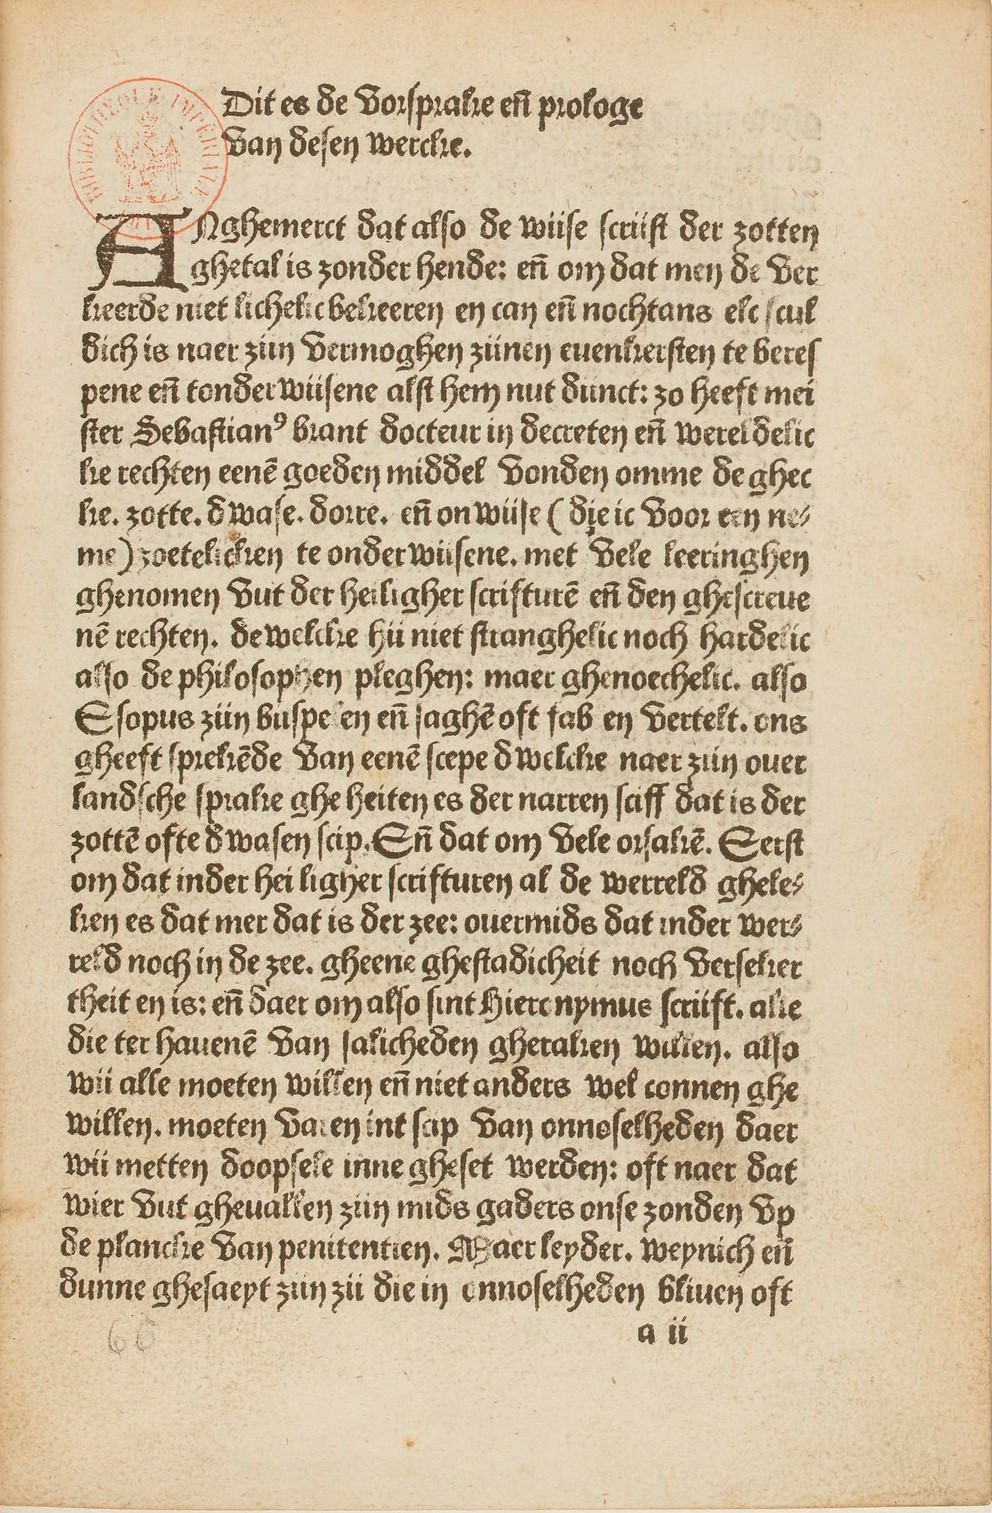 Dit es de vorsprake eñ prologe
van desen wercke.
BIBLIOTHEQUE IMPÉRIALE
ANghemerct dat also de wiise scriift der zotten
ghetal is zonder hende: eñ om dat men de ver
keerde niet lichelic bekeeren en can eñ nochtans elc scul
dich is naer ziin vermoghen ziinen euenkersten te beres
pene eñ tonderwiisene alst hem nut dunct: zo heeft mei
ster Sebastianꝰ brant docteur in decreten eñ wereldelic
ke rechten eenē goeden middel vonden omme de ghec
ke. zotte. dwase. dorre. eñ onwiise (die ic voor een ne⸗
me) zoetelicken te onderwiisene. met vele leeringhen
ghenomen vut der heiligher scrifturē eñ den ghescreue
nē rechten. de welcke hii niet stranghelic noch hardelic
also de philosophen pleghen: maer ghenoechelic. also
Esopus ziin biispelen eñ saghē oft fab en vertelt. ons
gheeft sprekēde van eenē scepe dwelcke naer ziin ouer
landsche sprake ghe heiten es der narren sciff dat is der
zottē ofte dwasen scip. Eñ dat om vele orsakē. Eerst
om dat inder hei ligher scrifturen al de werreld gheле⸗
ken es dat mer dat is der zee: ouermids dat inder wer⸗
reld noch in de zee. gheene ghestadicheit noch verseker
theit en is: eñ daer om also sint Hieronymus scriift. alle
die ter hauenē van salicheden gheraken willen. also
wii alle moeten willen eñ niet anders wel connen ghe
willen. moeten varen int scip van onnoselheden daer
wii metten doopsele inne gheset werden: oft naer dat
wier vut gheuallen ziin mids gaders onse zonden vp
de plancke van penitentien. Maer leyder. weynich eñ
dunne ghesaeyt ziin zii die in onnoselheden bliuen oft
a ii
66